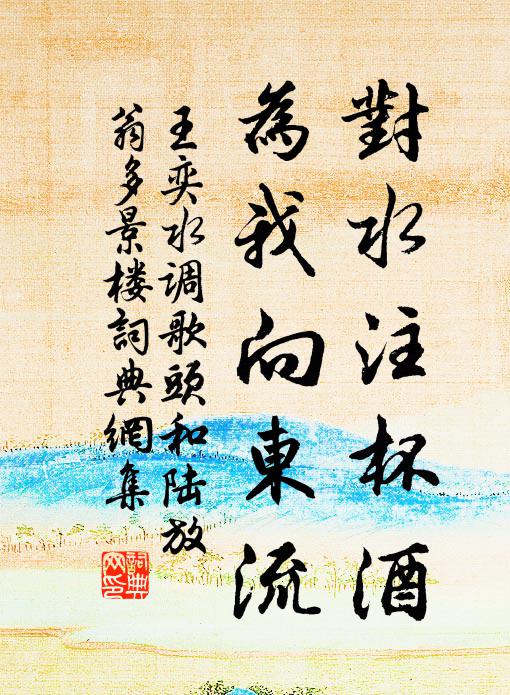 對水注杯酒
為我向東流
王奕水调歌頭和陆放
翁多景楼詞典網集
詞典网印